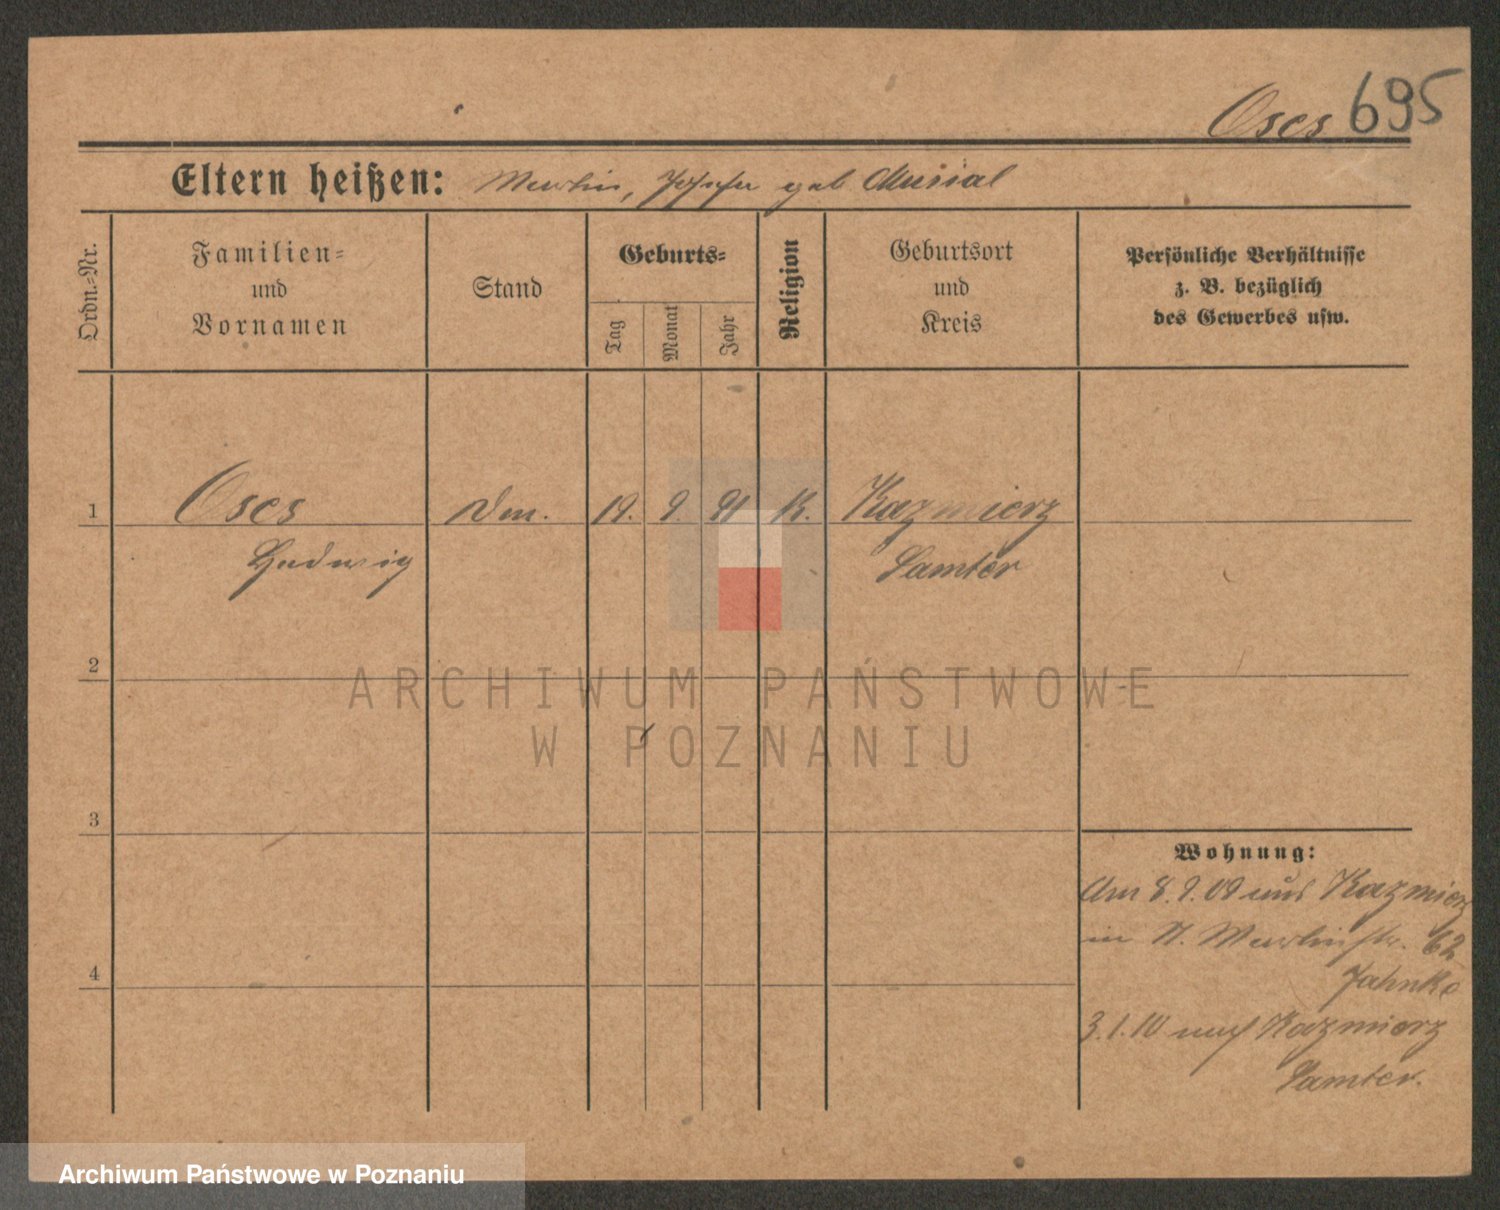 Oses 695
Eltern heißen: Martin, Josefa geb Musial
Ordn.-Nr.
Familien-
und
Vornamen
Stand
Geburts-
Tag
Monat
Jahr
Religion
Geburtsort
und
Kreis
Persönliche Verhältnisse
z. B. bezüglich
des Gewerbes usw.
1 Oses 19. 9. 91 K. Kazmierz
Hedwig Samter
2
3
4
Wohnung:
Am 8.9.09 aus Kazmierz
in St. Martinstr. 62
Jahnke
3.1.10 nach Kazmierz
Samter.
ARCHIWUM PAŃSTWOWE
W POZNANIU
Archiwum Państwowe w Poznaniu